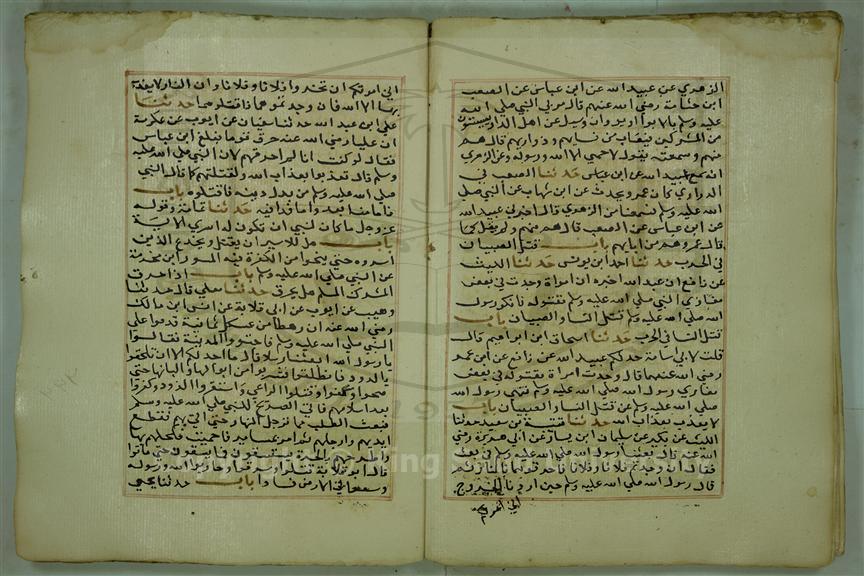 الزهري عن عبيد الله عن ابن عباس عن الصعب
ابن جثامة رضي الله عنهم قال مر بي النبي صلى الله
عليه وسلم بالابواء او بودان وسيل عن اهل الدار يبيتون
من المشركين فيصاب من نسايهم وذراريهم قال هم
منهم وسمعته يقول لا حمى الا لله ورسوله وعن الزهري
انه سمع عبيد الله عن ابن عباس حدثنا الصعب في
الذراري كان عمرو يحدث عن ابن شهاب عن النبي صلى
الله عليه وسلم فسمعناه من الزهري قال اخبرني عبيد الله
عن ابن عباس عن الصعب قال هم منهم ولم يقل كما
قال عمرو هم من ابايهم باب قتل الصبيان
في الحرب حدثنا احمد ابن يونس حدثنا الليث
عن نافع ان عبد الله اخبره ان امراة وجدت في بعض
مغازي النبي صلى الله عليه وسلم مقتولة فانكر رسول
الله صلى الله عليه وسلم قتل النساء والصبيان باب
قتل النساء في الحرب حدثنا اسحاق ابن ابراهيم قال
قلت لابي اسامة حدثكم عبيد الله عن نافع عن ابن عمر
رضي الله عنهما قال وجدت امراة مقتولة في بعض
مغازي رسول الله صلى الله عليه وسلم فنهى رسول الله
صلى الله عليه وسلم عن قتل النساء والصبيان باب
لا يعذب بعذاب الله حدثنا قتيبة بن سعيد حدثنا
الليث عن بكير عن سليمان ابن يسار عن ابي هريرة رضي
الله عنه قال بعثنا رسول الله صلى الله عليه وسلم في بعث
فقال ان وجدتم فلانا وفلانا فاحرقوهما بالنار ثم
قال رسول الله صلى الله عليه وسلم حين اردنا الخروج
اني امرتكم
اني امرتكم ان تحرقوا فلانا وفلانا وان النار لا يعذب
بها الا الله فان وجدتموهما فاقتلوهما حدثنا
علي ابن عبد الله حدثنا سفيان عن ايوب عن عكرمة
ان عليا رضي الله عنه حرق قوما فبلغ ابن عباس
فقال لو كنت انا لم احرقهم لان النبي صلى الله عليه
وسلم قال لا تعذبوا بعذاب الله ولقتلتهم كما قال النبي
صلى الله عليه وسلم من بدل دينه فاقتلوه باب
فاما منا بعد واما فداء فيه حديث ثمامة وقوله
عز وجل ما كان لنبي ان تكون له اسرى الاية
باب هل للاسير ان يقتل ويخدع الذين
اسروه حتى ينجوا من الكفرة فيه المسور ابن مخرمة
عن النبي صلى الله عليه وسلم باب اذا حرق
المشرك المسلم هل يحرق حدثنا معلى قال حدثنا
وهيب عن ايوب عن ابي قلابة عن انس ابن مالك
رضي الله عنه ان رهطا من عكل ثمانية قدموا على
النبي صلى الله عليه وسلم فاجتووا المدينة فقالوا
يا رسول الله ابغنا رسلا قال ما اجد لكم الا ان تلحقوا
بالذود فانطلقوا فشربوا من ابوالها والبانها حتى
صحوا وسمنوا وقتلوا الراعي واستاقوا الذود وكفروا
بعد اسلامهم فاتى الصريخ للنبي صلى الله عليه وسلم
فبعث الطلب فما ترجل النهار حتى اتي بهم فقطع
ايديهم وارجلهم ثم امر بمسامير فاحميت فكحلهم بها
وطرحهم بالحرة يستسقون فما يسقون حتى ماتوا
قال ابو قلابة قتلوا وسرقوا وحاربوا الله ورسوله
وسعوا في الارض فسادا باب حدثنا يحيى